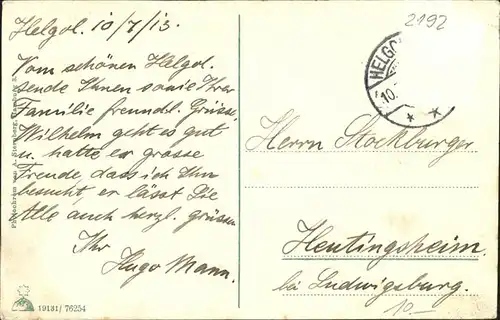 Helgol. 10/7/13.
Vom schönen Helgol.
sende Ihnen sowie Ihrer
Familie freundl. Grüsse.
Wilhelm geht es gut
u. hatte er grosse
Freude, dass ich Ihn
besucht, er lässt Sie
Alle auch herzl. grüssen
Ihr
Hugo Mann.
19131/76254
2192
HELGO
10.
Herrn Stockburger
Heutingsheim
bei Ludwigsburg.
10.—